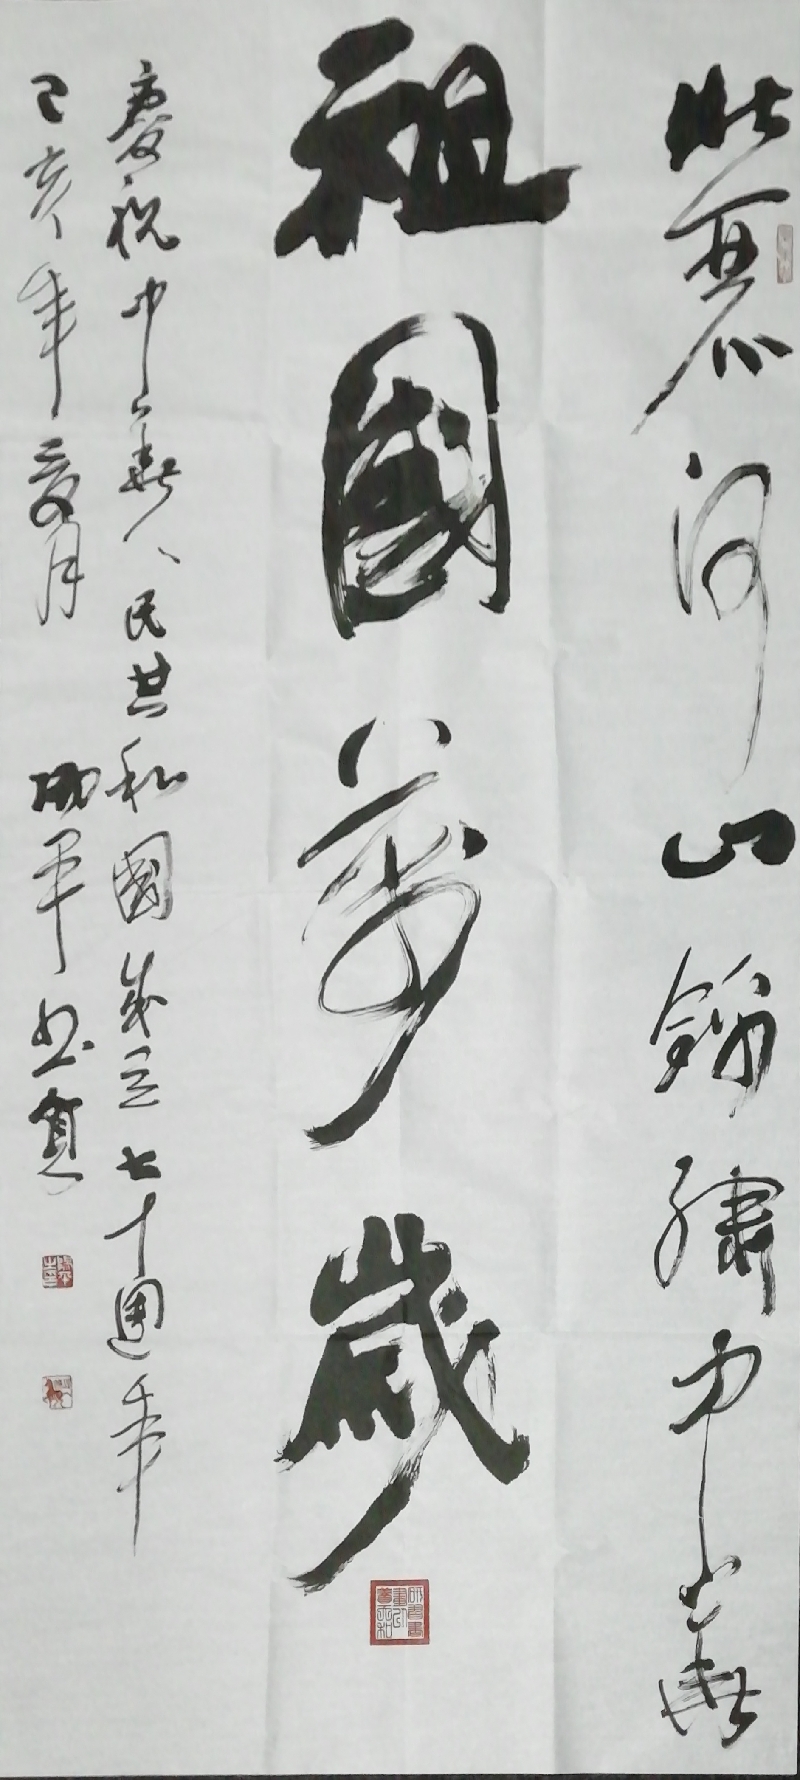 壯麗河山錦繡中華
祖國萬歲
慶祝中華人民共和國成立七十週年
己亥年夏月 平書賀